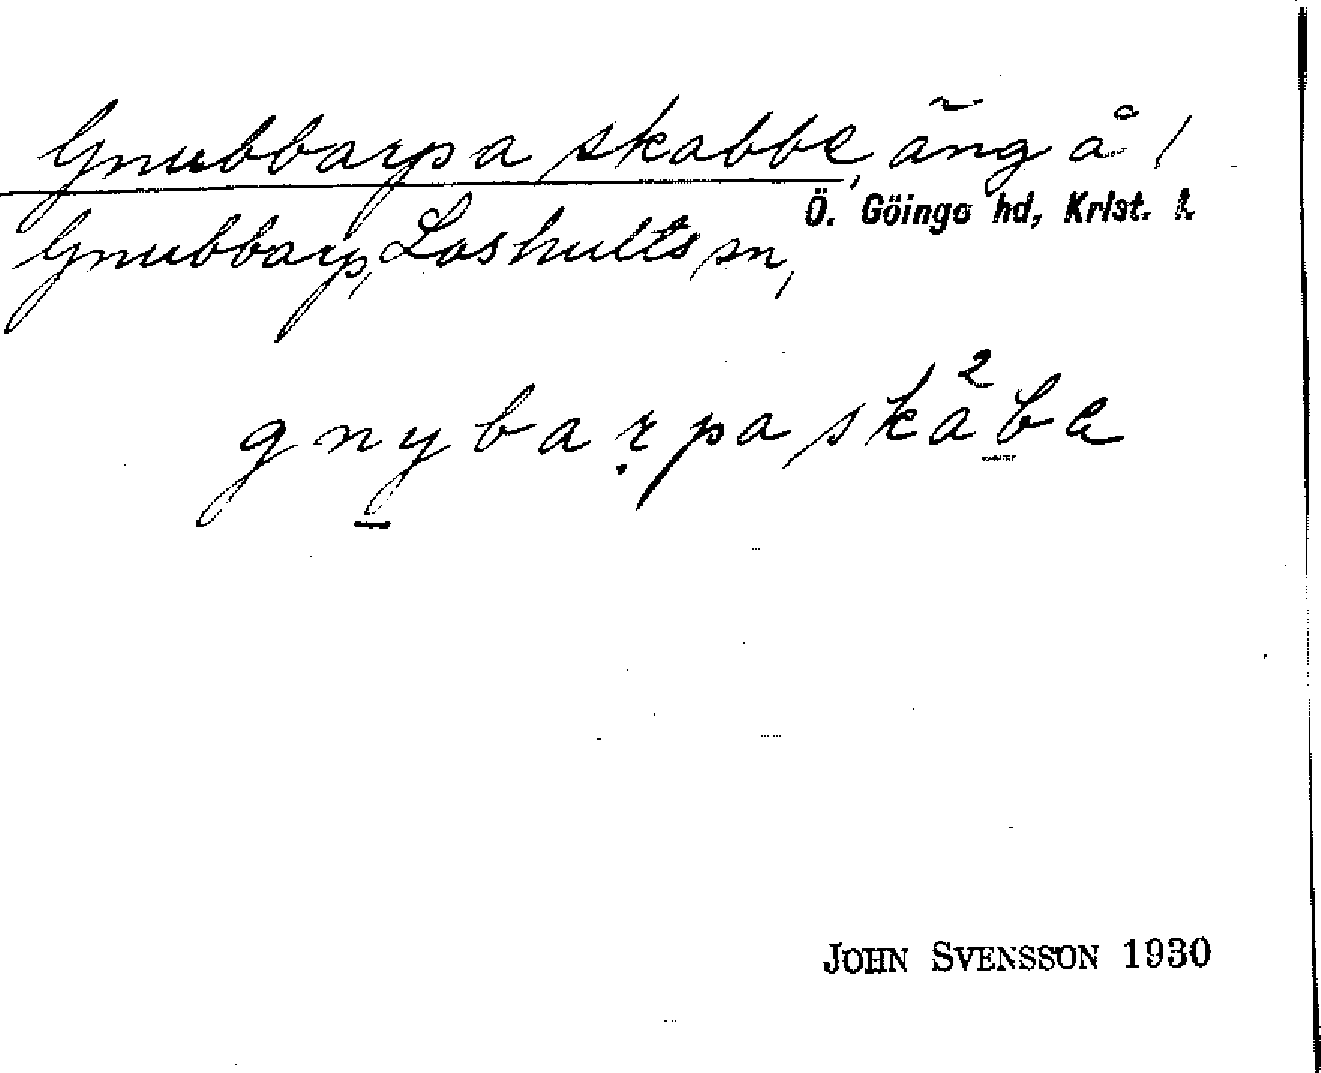 Gnubbarpa skabbe, äng å /
Ö. Göinge hd, Krist. l.
Gnubbarp, Loshults sn,
gnybarpaskà²be
JOHN SVENSSON 1930